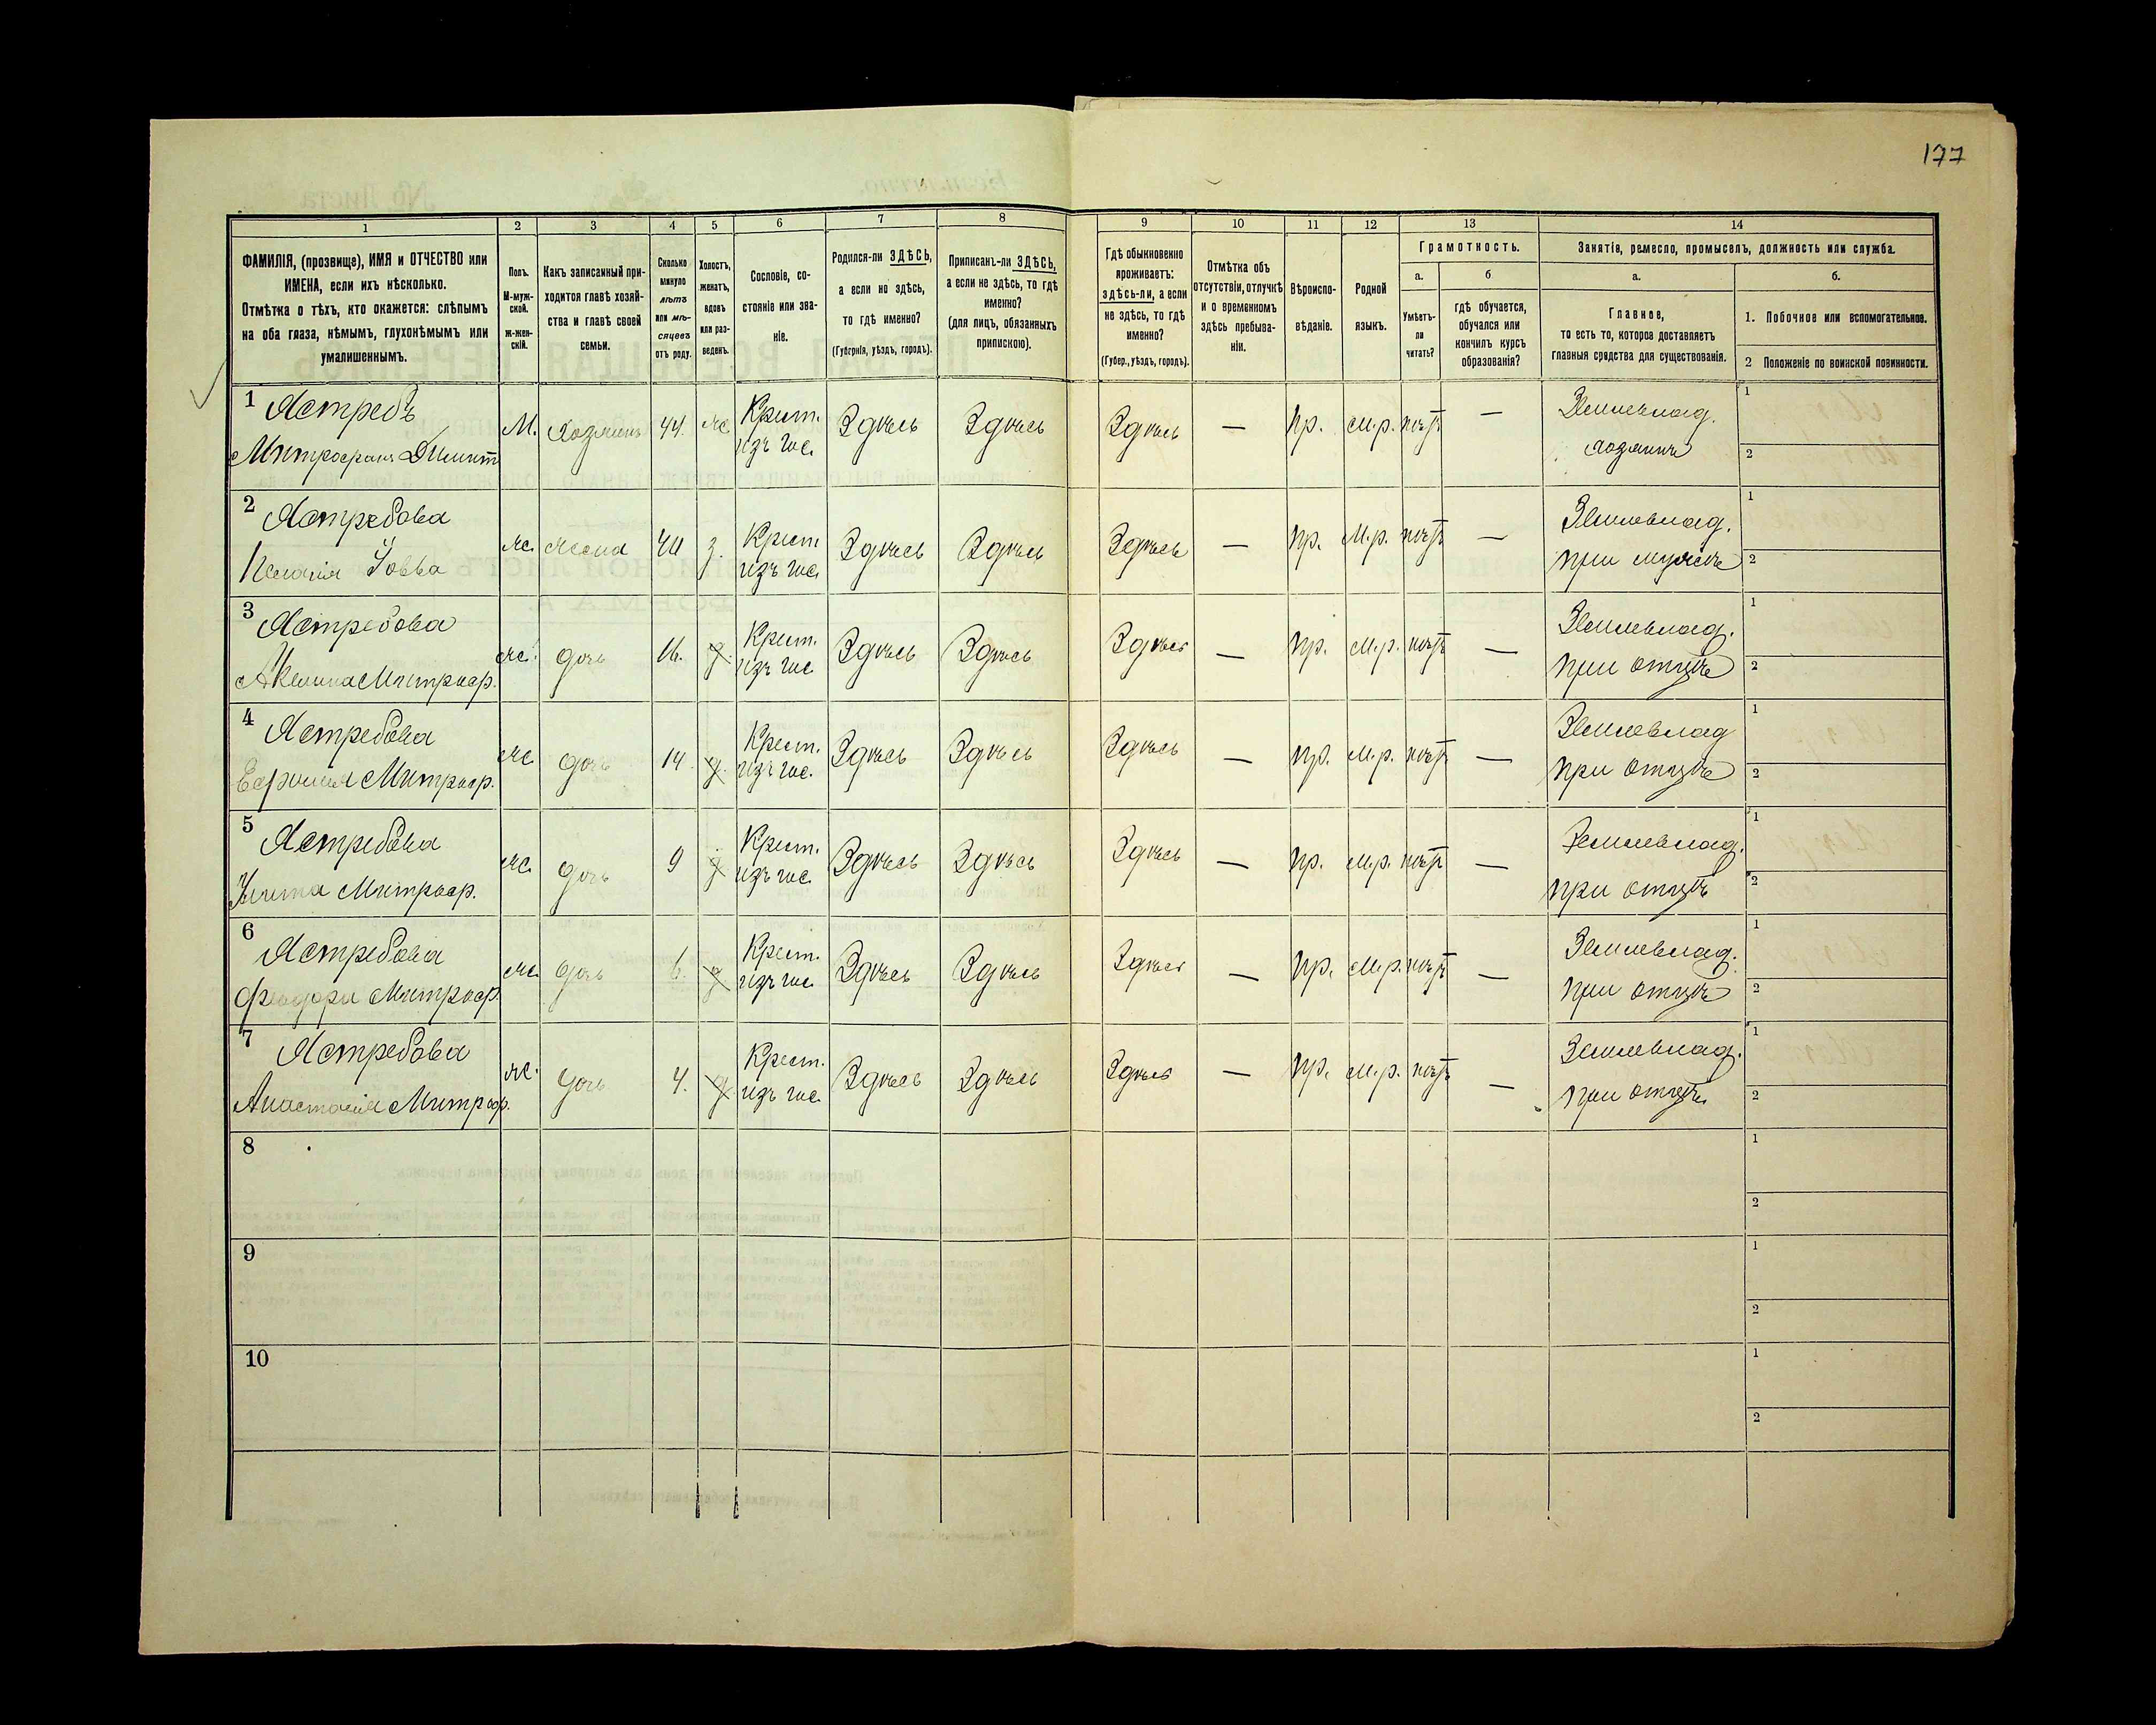 177
1
2
3
4
5
6
7
8
9
10
11
12
13
14
ФАМИЛІЯ, (прозвище), ИМЯ и ОТЧЕСТВО или
ИМЕНА, если ихъ нѣсколько.
Отмѣтка о тѣхъ, кто окажется: слѣпымъ
на оба глаза, нѣмымъ, глухонѣмымъ или
умалишеннымъ.
Полъ.
М-муж-
ской.
Ж-жен-
скій.
Какъ записанный при-
ходится главѣ хозяй-
ства и главѣ своей
семьи.
Сколько
минуло
лѣтъ
или мѣ-
сяцевъ
отъ роду.
Холостъ,
женатъ,
вдовъ
или раз-
веденъ.
Сословіе, со-
стояніе или зва-
ніе.
Родился-ли ЗДѢСЬ,
а если не здѣсь,
то гдѣ именно?
(Губернія, уѣздъ, городъ).
Приписанъ-ли ЗДѢСЬ,
а если не здѣсь, то гдѣ
именно?
(для лицъ, обязанныхъ
припискою).
Гдѣ обыкновенно
проживаетъ:
здѣсь-ли, а если
не здѣсь, то гдѣ
именно?
(Губер., уѣздъ, городъ).
Отмѣтка объ
отсутствіи, отлучкѣ
и о временномъ
здѣсь пребыва-
ніи.
Вѣроиспо-
вѣданіе.
Родной
языкъ.
Грамотность.
а.
Умѣетъ-
ли
читать?
б
гдѣ обучается,
обучался или
кончилъ курсъ
образованія?
Занятія, ремесло, промыселъ, должность или служба.
а.
Главное,
то есть то, которое доставляетъ
главныя средства для существованія.
б.
1. Побочное или вспомогательное.
2 Положеніе по воинской повинности.
1 Ястребъ
Митрофанъ Дмит
М. Хозяинъ 44. ж Крест.
изъ гос. Здѣсь Здѣсь Здѣсь — пр. м.р. нѣтъ — Землевлад.
хозяинъ
1
2
2 Ястребова
Пелагія Іовва
ж. жена 40 з. Крест
изъ гос. Здѣсь Здѣсь Здѣсь — пр. м.р. нѣтъ — Землевлад.
при мужѣ
1
2
3 Ястребова
Акелина Митроф.
ж. дочь 16. д. Крест.
изъ гос Здѣсь Здѣсь Здѣсь — пр. м.р. нѣтъ — Землевлад.
при отцѣ
1
2
4 Ястребова
Ефросинія Митроф.
ж. дочь 14 д. Крест.
изъ гос. Здѣсь Здѣсь Здѣсь — пр. м.р. нѣтъ — Землевлад
при отцѣ
1
2
5 Ястребова
Улита Митроф.
ж. дочь 9 д Крест.
изъ гос. Здѣсь Здѣсь Здѣсь — пр. м.р. нѣтъ — Землевлад.
при отцѣ
1
2
6 Ястребова
Феодора Митроф.
ж. дочь 6. д Крест.
изъ гос Здѣсь Здѣсь Здѣсь — пр. м.р. нѣтъ — Землевлад.
при отцѣ
1
2
7 Ястребова
Анастасія Митроф.
ж. дочь 4. д Крест.
изъ гос. Здѣсь Здѣсь Здѣсь — пр. м.р. нѣтъ — Землевлад.
при отцѣ
1
2
8
1
2
9
1
2
10
1
2